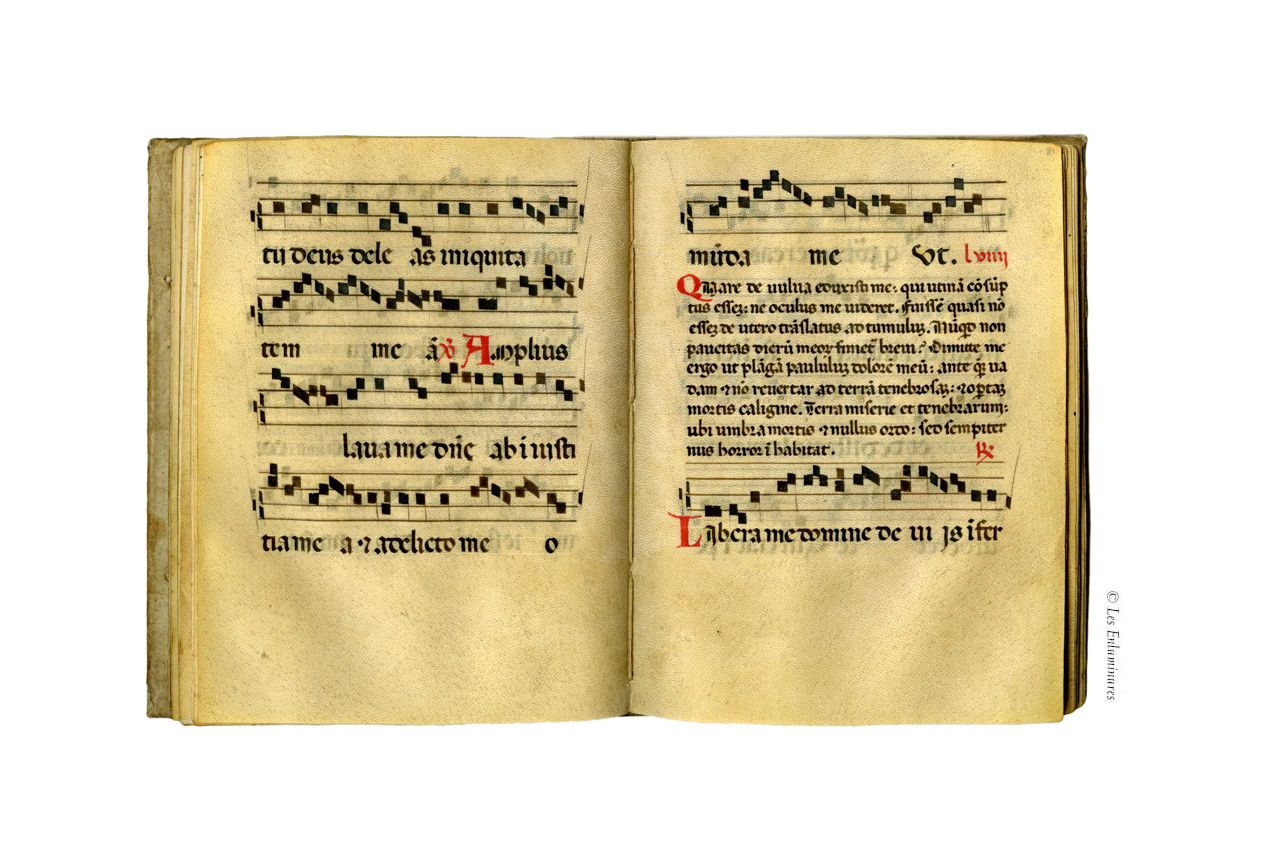 tu deus dele as iniquita
tem me a ℣ Amplius
lava me dn̄e ab iniusti
tia mea ⁊ a delicto meo
mūda me Ut. lviiij
Quare de uulua eduxisti me: qui utinā cōsūp
tus essez: ne oculus me uideret. Fuissē quasi nō
essez de utero trāslatus ad tumuluz. Nūqd non
paucitas dierū meoꝝ finiet̄ brevi? Dimitte me
ergo ut plāgā paululuz dolorē meū: ante qz ua
dam ⁊ nō revertar ad terrā tenebrosaz: ⁊ optaz
mortis caligine. Terra miserie et tenebrarum:
ubi umbra mortis ⁊ nullus ordo: sed sempiter
nus horror ī habitat. ℟
Libera me domine de vi is īfer
© Les Enluminures